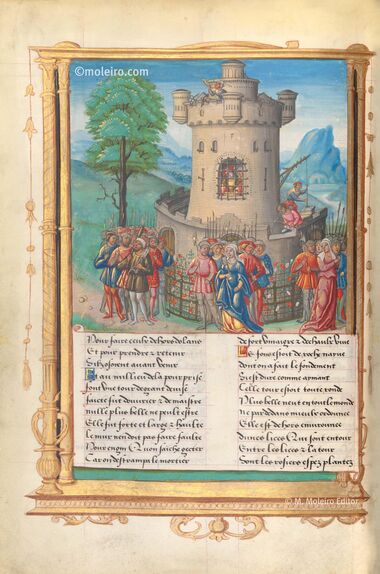 ©moleiro.com
Pour faire ceulx dehors doulans
Et pour prendre & retenir
Silz osoient avant venir
Et au millieu de la pourprise
font une tour devant
faicte fut du ouvrier & maistre
nulle plus belle ne peult estre
Elle fut forte et large & haulte
le mur ne doit pas faire faulte
Pour engin qu on saiche gecter
Car on destrampa le mortier
de fort vinaigre & de chaulx vive
Le fons estoit de roche naive
dont on a fait le fondement
Si est dure comme aymant
Celle tour estoit toute ronde
Plus belle neut en tout le monde
ne par dedans mieulx ordonnee
Elle est dehors environnee
Dunes lices qui sont entour
Entre les lices & la tour
Sont les rosiers espez plantez
© M. Moleiro Editor